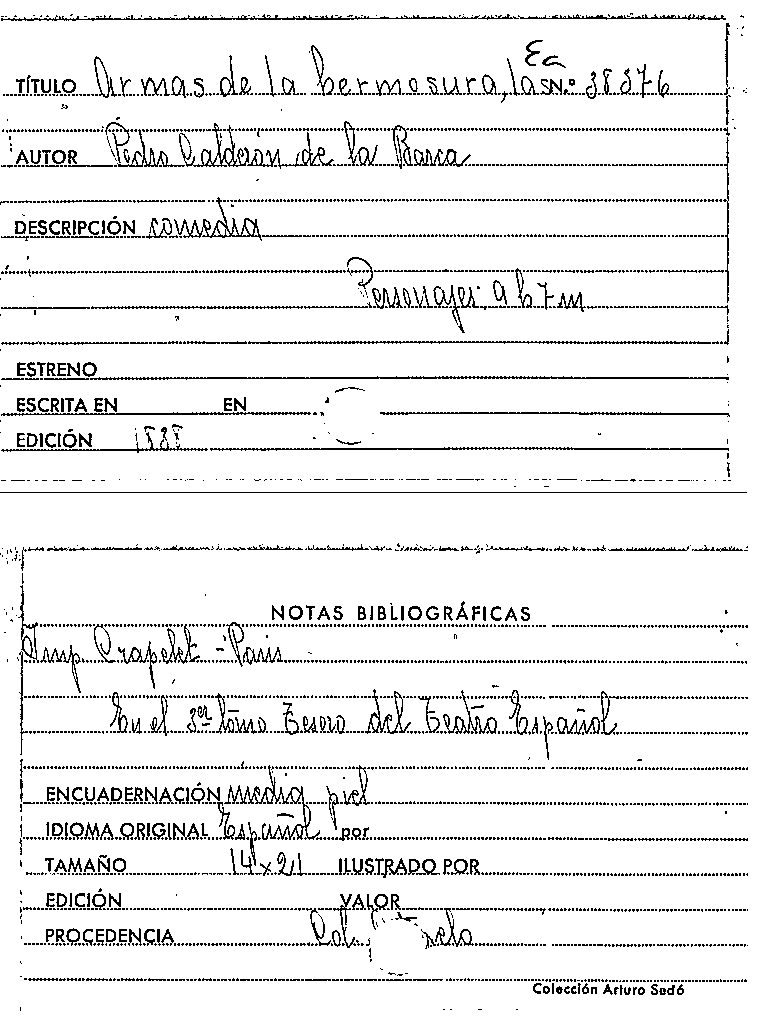 Ea
TÍTULO Armas de la hermosura, las N.º 38376
AUTOR Pedro Calderón de la Barca
DESCRIPCIÓN comedia
Personajes: 9 h 7 m
ESTRENO
ESCRITA EN EN
EDICIÓN 1838
NOTAS BIBLIOGRÁFICAS
Imp Crapelet - Paris
En el 3er tomo Tesoro del Teatro Español
ENCUADERNACIÓN media piel
IDIOMA ORIGINAL Español por
TAMAÑO 14 x 21 ILUSTRADO POR
EDICIÓN VALOR
PROCEDENCIA
Colección Arturo Sedó